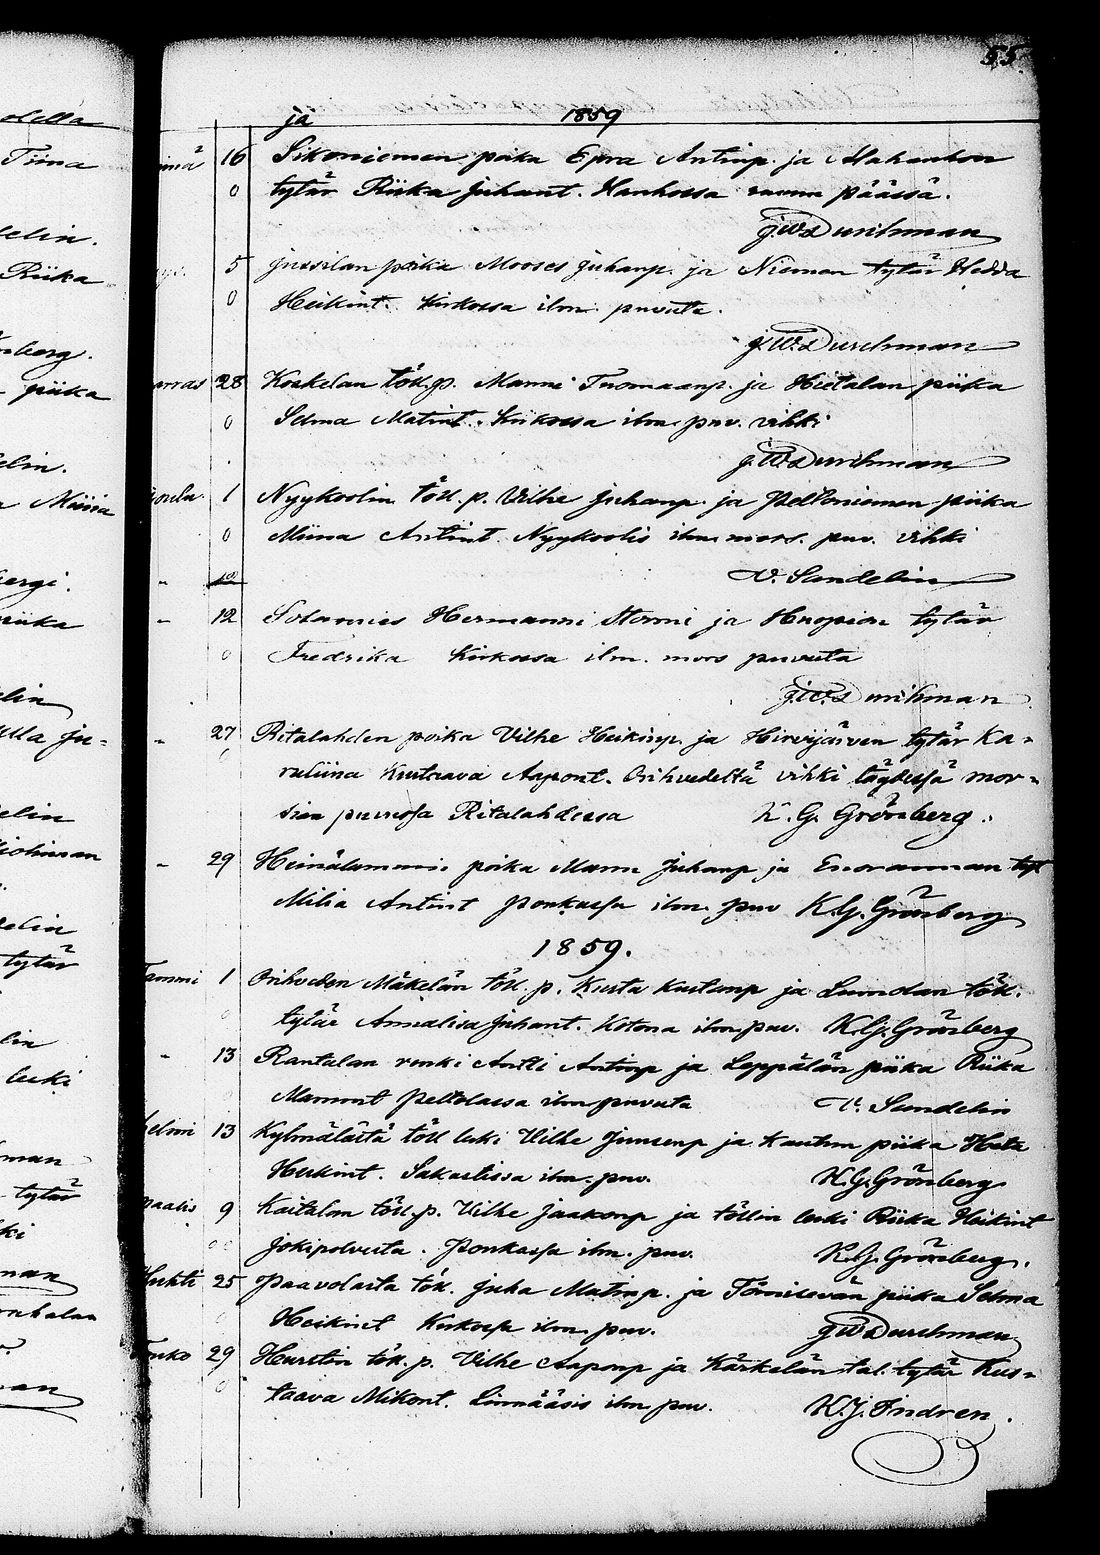 55.
ja 1859
16 Sikoniemen poika Epra Antinp. ja Alahanhon
0 tytär Riika Juhant. Hanhossa ruunu päässä.
J.W. Durchman
5 Jussilan poika Mooses Juhanp. ja Niemen tytär Hedda
0 Heikint. Kirkossa ilm. puvuta.
J.W. Durchman
arras 28 Koskelan töll.p. Manni Tuomaanp. ja Hietalan piika
0 Selma Matint. Kirkossa ilm. puv. vihki
J.W. Durchman
joulu 1 Nyykoolin töll. p. Vilhe Juhanp. ja Peltoniemen piika
0 Miina Antint. Nyykoolis ilm. mors. puv. vihki
- 12 V. Sandelin
- 12 Sotamies Hermanni Stormi ja Huopion tytär
0 Fredrika Kirkossa ilm. mors puvuta
J.W. Durchman
- 27 Ritalahden poika Vilhe Heikinp. ja Hirvijärven tytär Ka-
0 ruliina Kustaava Aapont. Orihvedeltä vihki täydessä mor-
sien puvussa Ritalahdessa K. G. Grönberg.
- 29 Heinälammi poika Mann Juhanp ja Enorannan tyt
Milia Antint Ponkassa ilm. puv K.G. Grönberg
1859.
Tammi 1 Orihveden Mäkelän töll. p. Kusta Kustanp ja Lundan töll.
tytär Annaliisa Juhant. Kotona ilm. puv. K.G. Grönberg
- 13 Rantalan renki Antti Antinp ja Leppälän piika Riika
Mamont Peltolassa ilm puvuta V. Sandelin
helmi 13 Kylmälästä töll leski Vilhe Junsenp ja Kauton piika Heta
Heikint. Sakastissa ilm. puv. K.G. Grönberg
maalis 9 Kaitalan töll.p. Vilhe Jaakonp ja töllin leski Riika Heikint
Jokipolvesta. Ponkassa ilm. puv. K.G. Grönberg.
Huhti 25 Paavolasta töll. Juha Matinp. ja Törnisevän piika Selma
Heikint Kirkossa ilm. puv. J W Durchman
Touko 29 Hurstin töll. p. Vilhe Aaponp ja Kärkelän tal. tytär Kus-
0 taava Mikont. Linnääsis ilm puv. K.J. Indren.